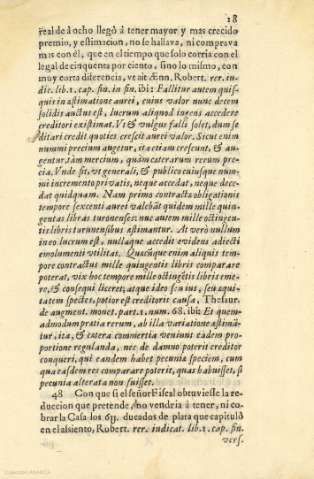 18
real de à ocho llegò à tener mayor y mas crecido
premio, y estimacion, no se hallava, ni comprava
mas con él, que en el tiempo que solo corria con el
legal de cinquenta por ciento, sino lo mismo, con
muy corta diferencia, ve ait cōnn. Robert. rer. iu-
dic. lib. 1. cap. fin. in fin. ibi: Fallitur autem quis-
quis in æstimatione aurei, cuius valor nunc decem
solidis auctus est, lucrum aliquod ingens accedere
creditori existimat. Vt & vulgus falli solet, dum se
ditari credit quoties crescit aurei valor. Sicut enim
nummi precium augetur, ita etiam crescunt, & au-
gentur, tàm mercium, quàm cæterarum rerum pre-
cia. Vnde fit, vt generali, & publico cuiusque num-
mi incremento privatis, neque accedat, neque dece-
dat quidquam. Nam primo contractæ obligationis
tempore sexcenti aurei valebāt quidem mille quin-
gentas libras turonenses: nuc autem mille octingen-
tis libris turunensibus æstimantur. At verò nullum
in eo lucrum est, nullaque accedit evidens adiecti
emolumenti vtilitas. Quascūque enim aliquis tem-
pore contractus mille quingentis libris comparare
poterat, vix hoc tempore mille octingētis libris eme-
re, & consequi liceret; atque ideo seu ius, seu equi-
tatem spectes, potior est creditoris causa, Thesaur.
de augment. monet. part. 2. num. 68. ibi: Et quem-
admodum pratia rerum, ab illa variatione æstimā-
tur, ita, & cætera commertia veniunt eadem pro-
portione regulanda, nec de damno poterit creditor
conqueri, qui eandem habet pecuniæ speciem, cum
qua easdem res comparare poterit, quas habuisset, si
pecunia alterata non fuisset.
48 Con que si el señor Fiscal obtuviesse la re-
duccion que pretende, no vendria à tener, ni co-
brar la Casa los 6y. ducados de plata que capitulò
en el assiento, Robert. rer. indicat. lib. 1. cap. fin.
vers.